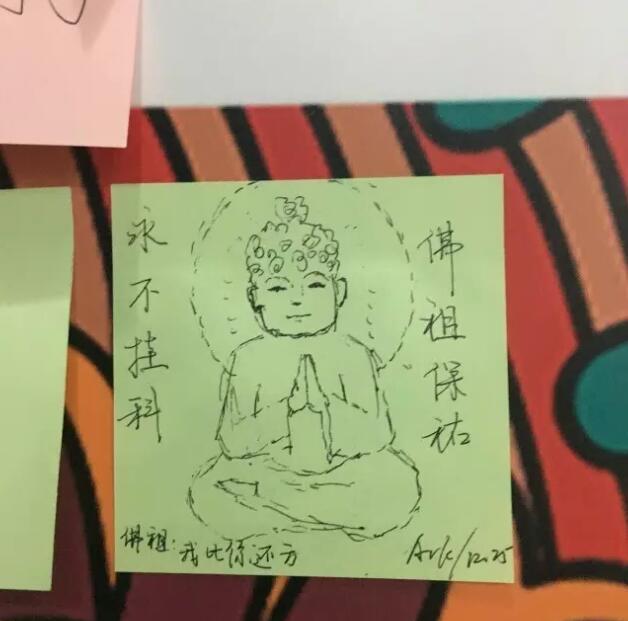 佛祖保祐
永不挂科
佛祖:我比你还方
Ark/12.25